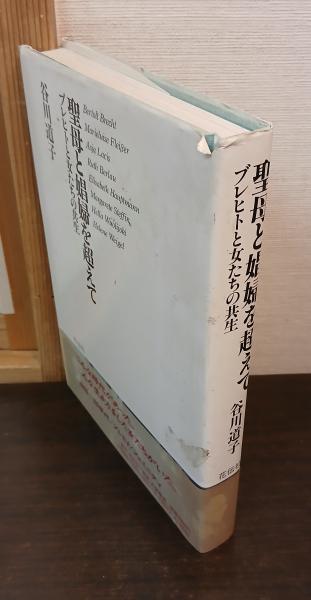 聖母と娼婦を超えて
ブレヒトと女たちの共生
谷川道子
Bertolt Brecht
Marieluise Fleißer
Asja Lacis
Ruth Berlau
Elisabeth Hauptmann
Margarete Steffin
Hella Wuolijoki
Helene Weigel
聖母と娼婦を超えて
ブレヒトと女たちの共生
谷川道子
花伝社